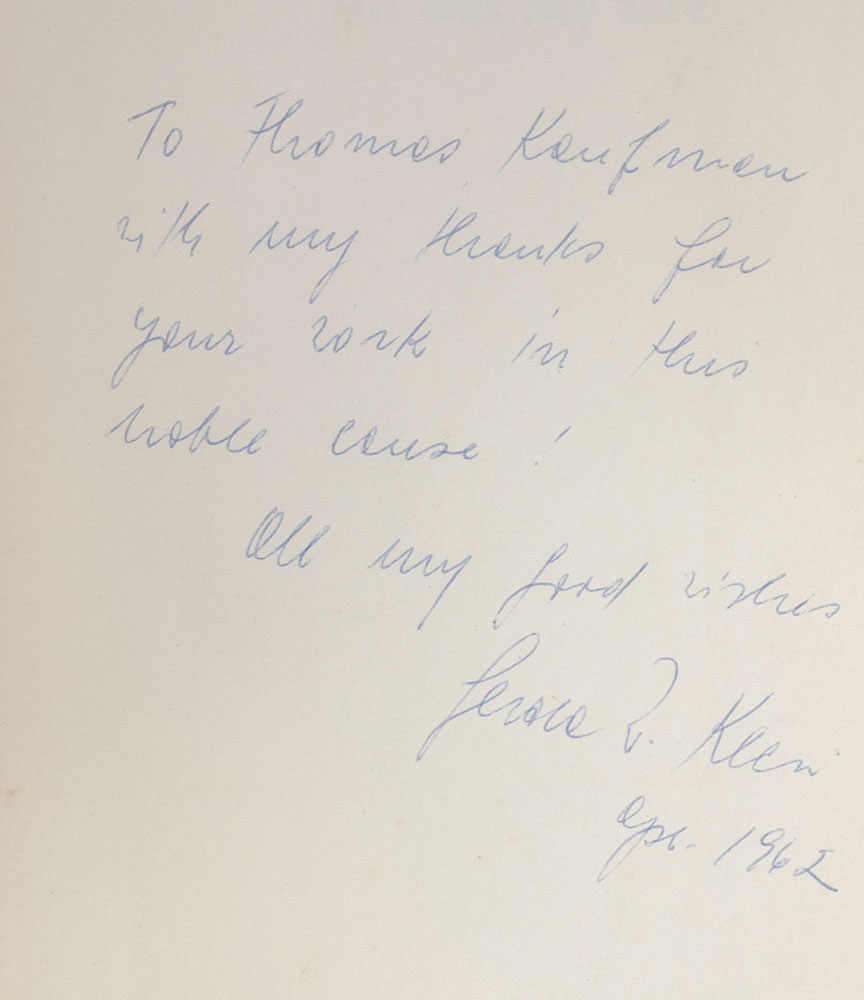 To Thomas Kaufman
with my thanks for
your work in this
noble cause!
All my good wishes
Gerald Klein
Apr. 1962